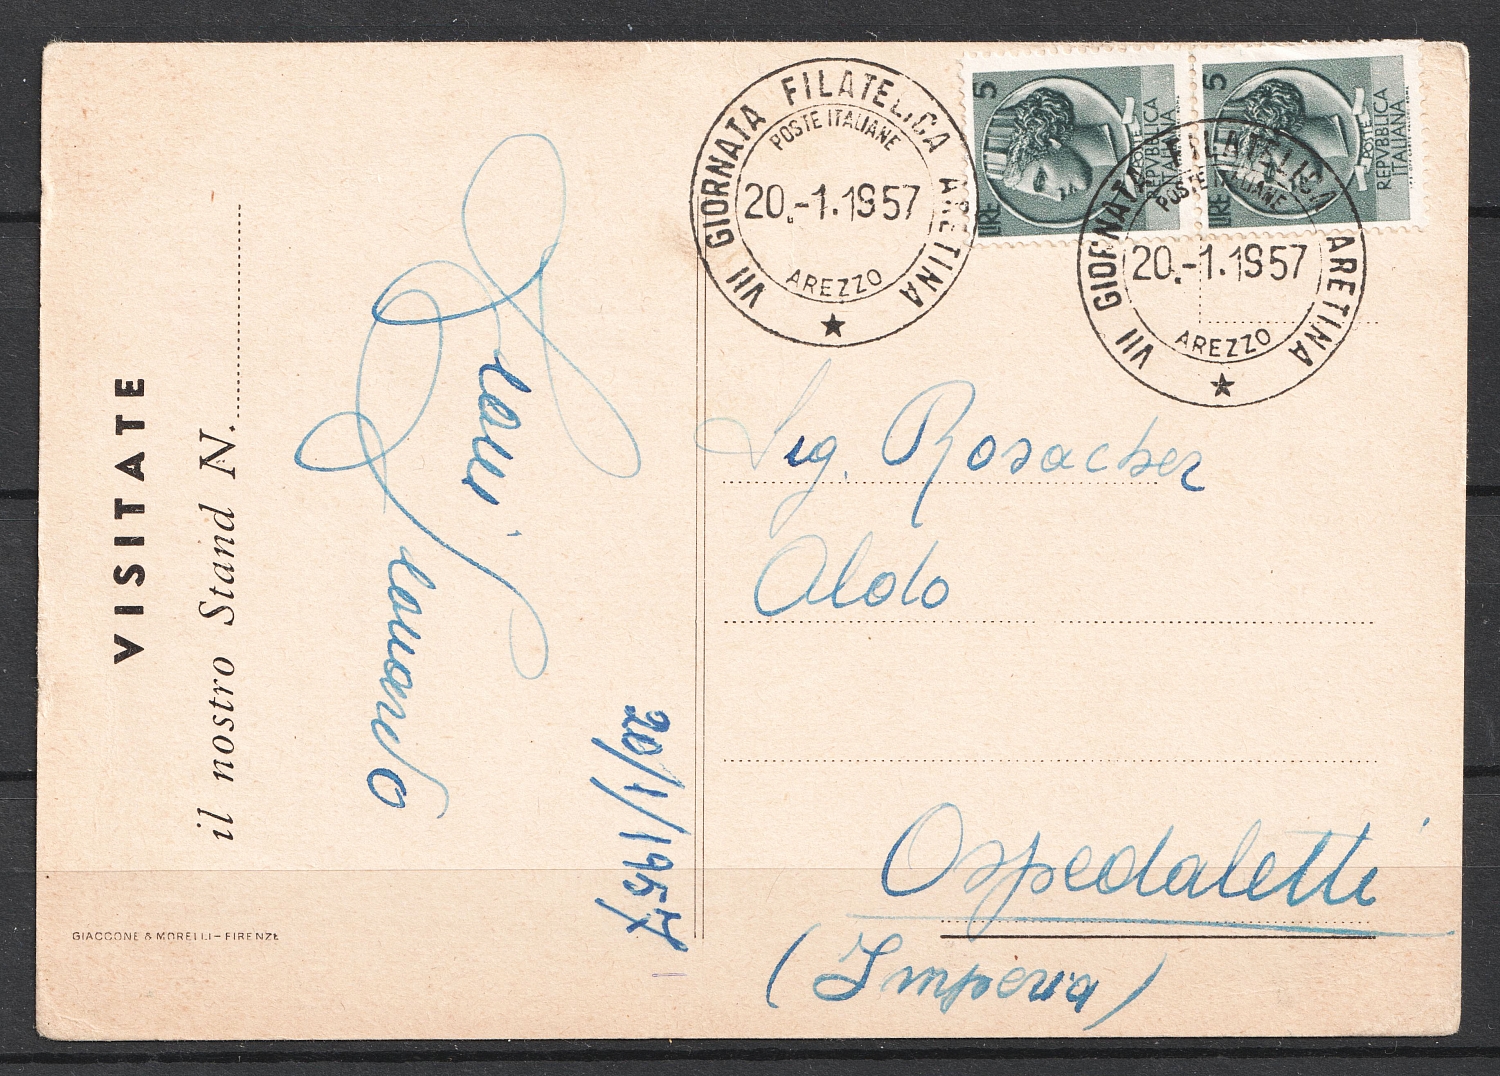 VISITATE
il nostro Stand N.
GIACCONE & MORELLI - FIRENZE
20/1/1957
VII GIORNATA FILATELICA ARETINA
POSTE ITALIANE
20.-1.1957
AREZZO
5
LIRE
POSTE
REPVBBLICA
ITALIANA
5
LIRE
POSTE
REPVBBLICA
ITALIANA
VII GIORNATA FILATELICA ARETINA
POSTE ITALIANE
20.-1.1957
AREZZO
Sig. Rosacher
Aldo
Ospedaletti
(Imperia)